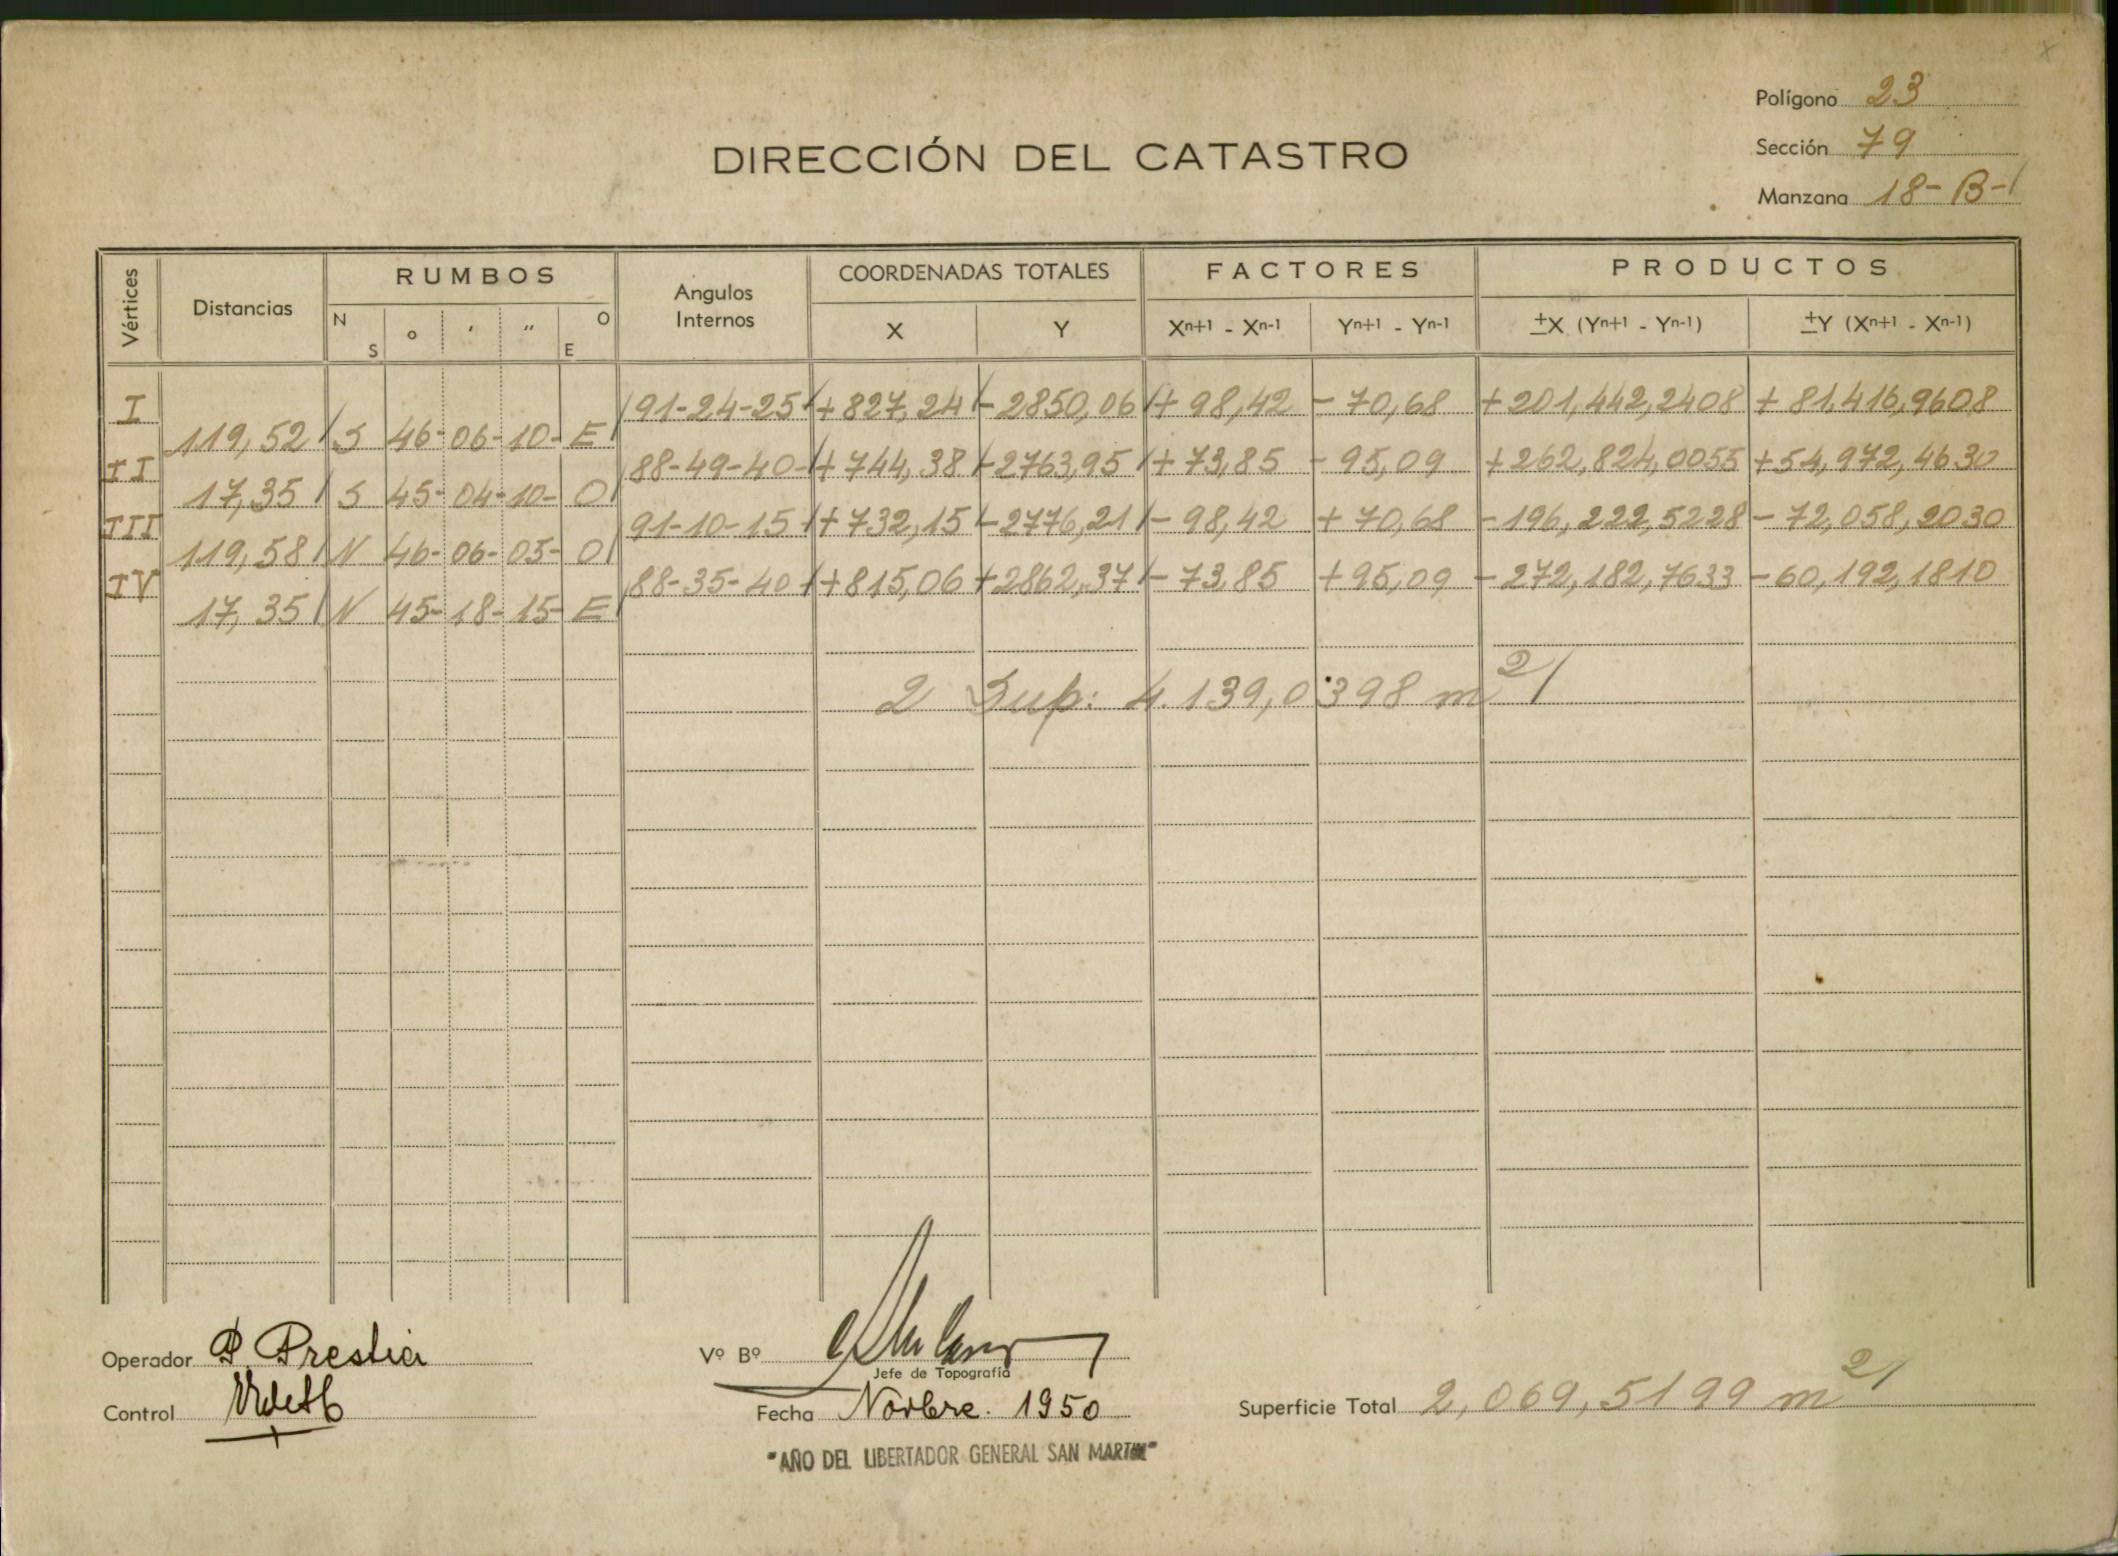 Polígono 23
DIRECCIÓN DEL CATASTRO
Sección 79
Manzana 18-B-1
Vértices
Distancias
RUMBOS
N S ° ' " O E
Angulos Internos
COORDENADAS TOTALES
X Y
FACTORES
Xn+1 - Xn-1 Yn+1 - Yn-1
PRODUCTOS
±X (Yn+1 - Yn-1) ±Y (Xn+1 - Xn-1)
I 91-24-25 +827,24 -2850,06 +98,42 -70,68 +201,442,2408 +81,416,9608
119,52 S 46-06-10-E
II 88-49-40 +744,38 -2763,95 +73,85 -95,09 +262,824,0055 +54,972,4630
17,35 S 45-04-10-O
III 91-10-15 +732,15 -2776,21 -98,42 +70,68 -196,222,5228 -72,058,2030
119,58 N 46-06-05-O
IV 88-35-40 +815,06 +2862,37 -73,85 +95,09 -272,182,7633 -60,192,1810
17,35 N 45-18-15-E
2 Sup: 4.139,0398 m2
Operador P. Prestia
Vº Bº
Jefe de Topografía
Control
Fecha Novbre. 1950
Superficie Total 2,069,5199 m2
"AÑO DEL LIBERTADOR GENERAL SAN MARTIN"